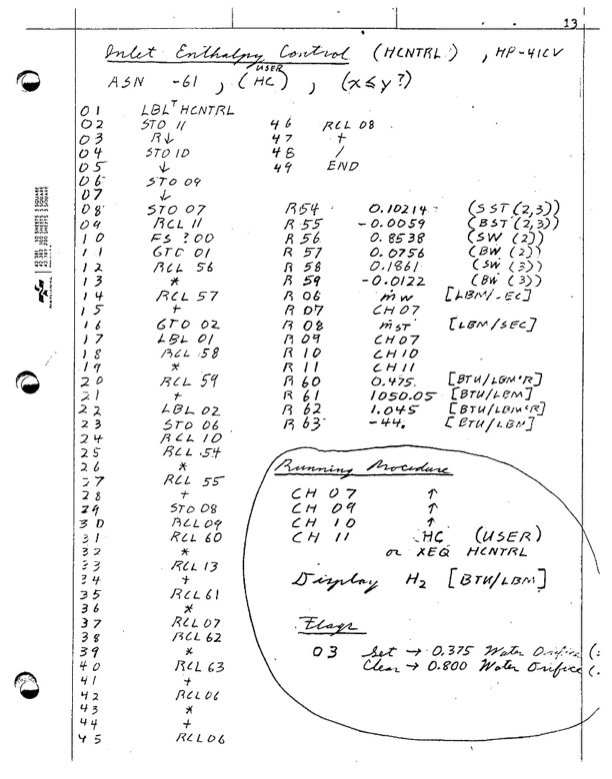 13
Inlet Enthalpy Control (HCNTRL), HP-41CV
USER
ASN -61, (HC), (x≤y?)
01 LBLᵀ HCNTRL
02 STO 11
03 R↓
04 STO 10
05 ↓
06 STO 09
07 ↓
08 STO 07
09 RCL 11
10 FS ? 00
11 GTO 01
12 RCL 56
13 *
14 RCL 57
15 +
16 GTO 02
17 LBL 01
18 RCL 58
19 *
20 RCL 59
21 +
22 LBL 02
23 STO 06
24 RCL 10
25 RCL 54
26 *
27 RCL 55
28 +
29 STO 08
30 RCL 09
31 RCL 60
32 *
33 RCL 13
34 +
35 RCL 61
36 *
37 RCL 07
38 RCL 62
39 *
40 RCL 63
41 +
42 RCL 06
43 *
44 +
45 RCL 06
46 RCL 08
47 +
48 /
49 END
R54 0.10214 (SST (2,3))
R55 -0.0059 (BST (2,3))
R56 0.8538 (SW (2))
R57 0.0756 (BW (2))
R58 0.1861 (SW (3))
R59 -0.0122 (BW (3))
R06 ṁw [LBM/-EC]
R07 CH07
R08 ṁST [LBM/SEC]
R09 CH07
R10 CH10
R11 CH11
R60 0.475 [BTU/LBM°R]
R61 1050.05 [BTU/LBM]
R62 1.045 [BTU/LBM°R]
R63 -44. [BTU/LBM]
Running Procedure
CH 07 ↑
CH 09 ↑
CH 10 ↑
CH 11 HC (USER)
or XEQ HCNTRL
Display H₂ [BTU/LBM]
Flags
03 Set → 0.375 Water Orifice (
Clear → 0.800 Water Orifice (